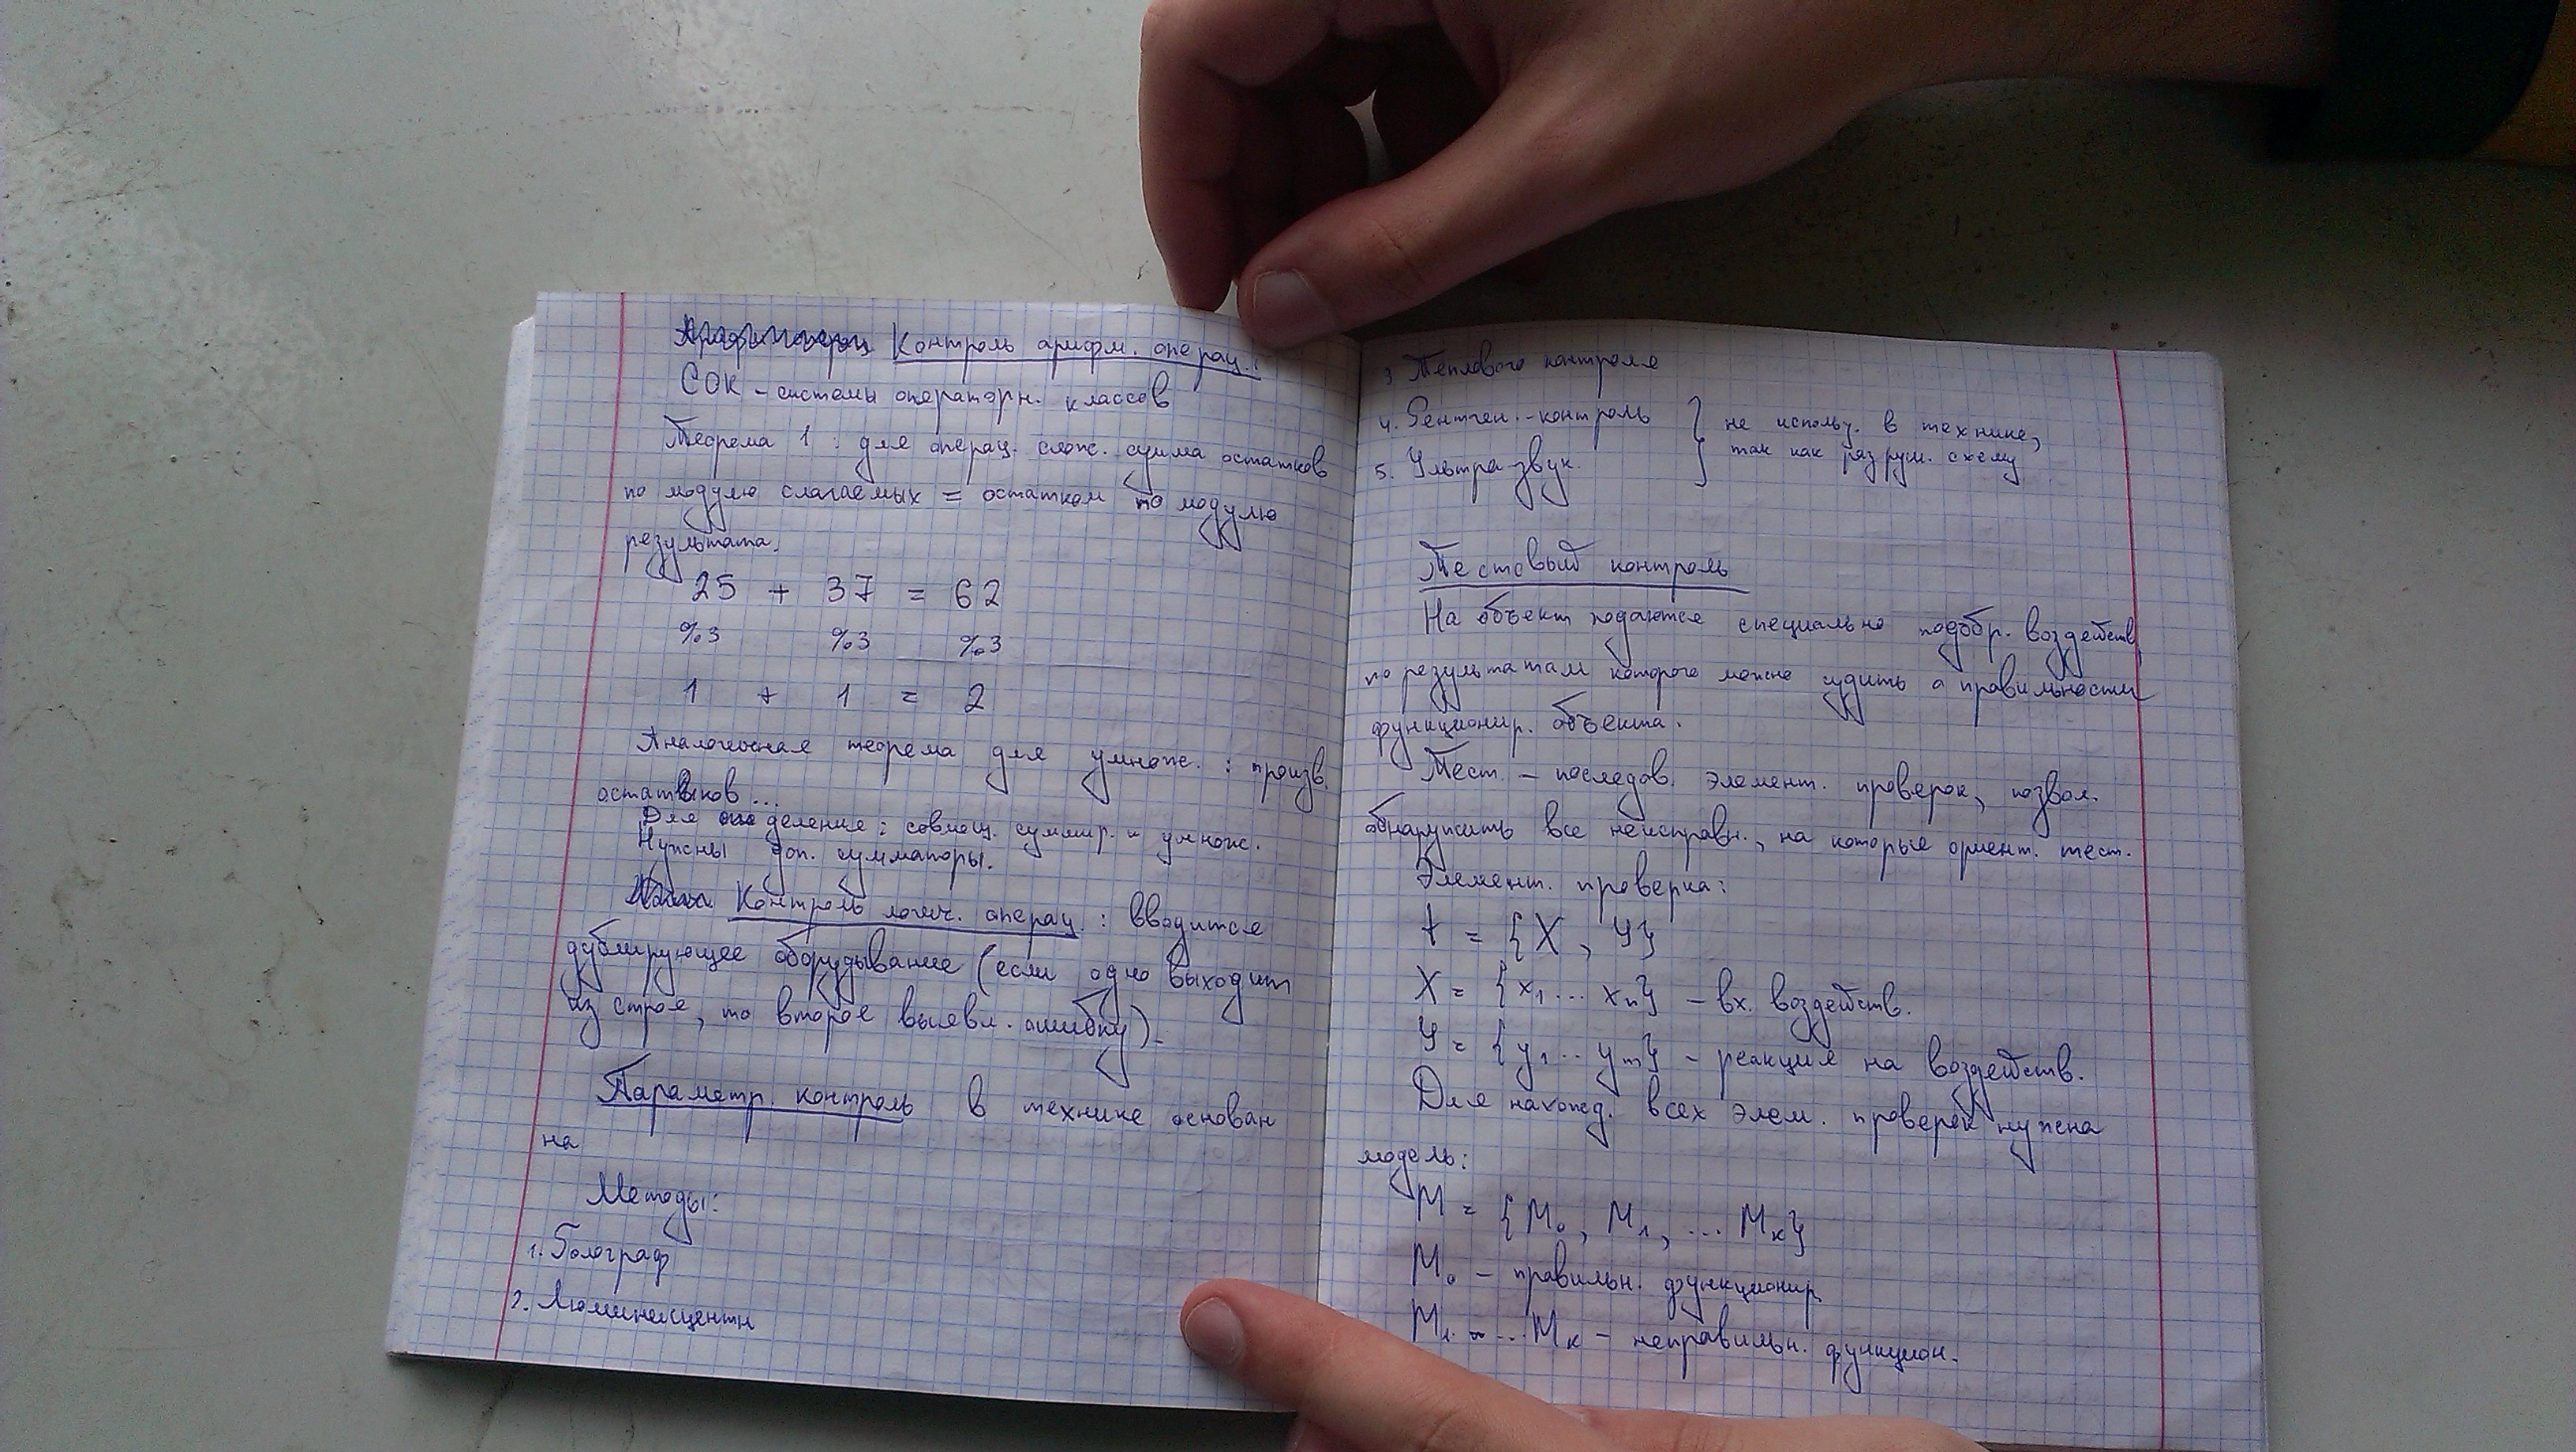 Контроль арифм. операц.:
СОК - системы операторн. классов
Теорема 1: для операц. слож. сумма остатков
по модулю слагаемых = остатком по модулю
результата.
25 + 37 = 62
%3 %3 %3
1 + 1 = 2
Аналогичная теорема для умнож.: произв.
остатков...
Для деления: совмещ. суммир. и умнож.
Нужны доп. сумматоры.
Контроль логич. операц.: вводится
дублирующее оборудывание (если одно выходит
из строя, то второе выявл. ошибку).
Параметр. контроль в технике основан
на
Методы:
1. Голограф
2. Люминисцентн
3 Теплового контроля
4. Рентген.-контроль } не использ. в технике,
5. Ультразвук. } так как разруш. схему
Тестовый контроль
На объект подаются специально подобр. воздейств,
по результатам которого можно судить о правильности
функционир. объекта.
Тест. - последов. элемент. проверок, позвол.
обнаружить все неисправн., на которые ориент. тест.
Элемент. проверка:
t = {X, Y}
X = {x₁... xₙ} - вх. воздейств.
Y = {y₁... yₘ} - реакция на воздейств.
Для нахожд. всех элем. проверок нужна
модель:
M = {M₀, M₁, ... Mₖ}
M₀ - правильн. функционир.
M₁ ... Mₖ - неправильн. функцион.